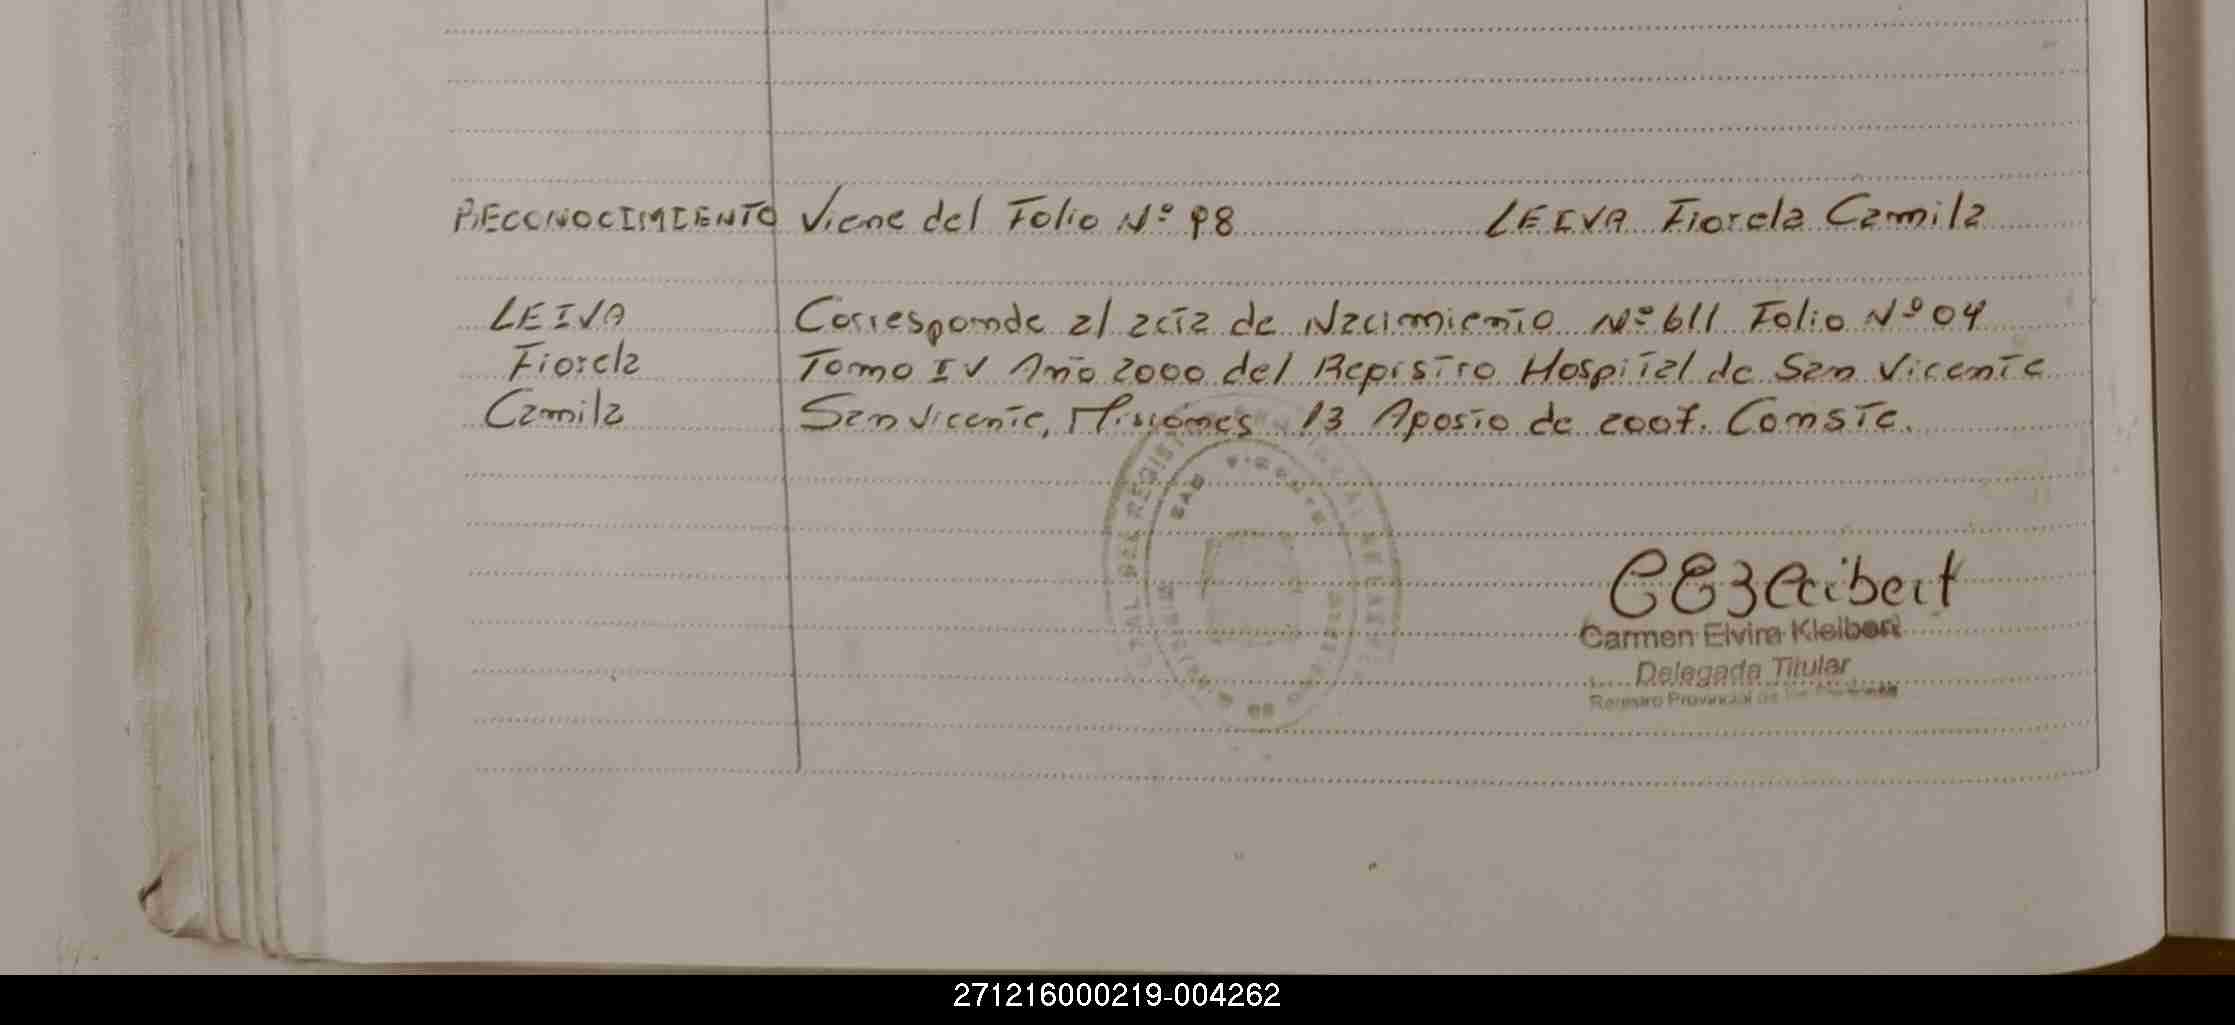 RECONOCIMIENTO Viene del Folio Nº 98 LEIVA Fiorela Camila
LEIVA Corresponde al acta de Nacimiento Nº 611 Folio Nº 04
Fiorela Tomo IV Año 2000 del Registro Hospital de San Vicente
Camila San Vicente, Misiones 13 Agosto de 2007. Conste.
SAN VICENTE
CEKleibert
Carmen Elvira Kleibert
Delegada Titular
Registro Provincial de las Personas
271216000219-004262